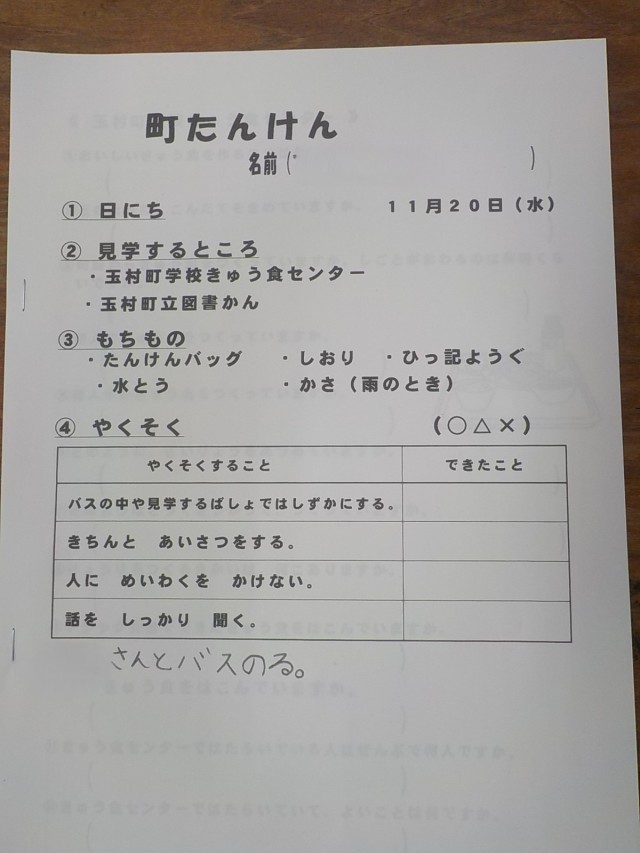 町たんけん
名前（　　　　　　　）
① 日にち　　１１月２０日（水）
② 見学するところ
・玉村町学校きゅう食センター
・玉村町立図書かん
③ もちもの
・たんけんバッグ　・しおり　・ひっ記ようぐ
・水とう　・かさ（雨のとき）
④ やくそく　　（○△×）
やくそくすること　できたこと
バスの中や見学するばしょではしずかにする。
きちんと　あいさつをする。
人に　めいわくを　かけない。
話を　しっかり　聞く。
さんとバスのる。